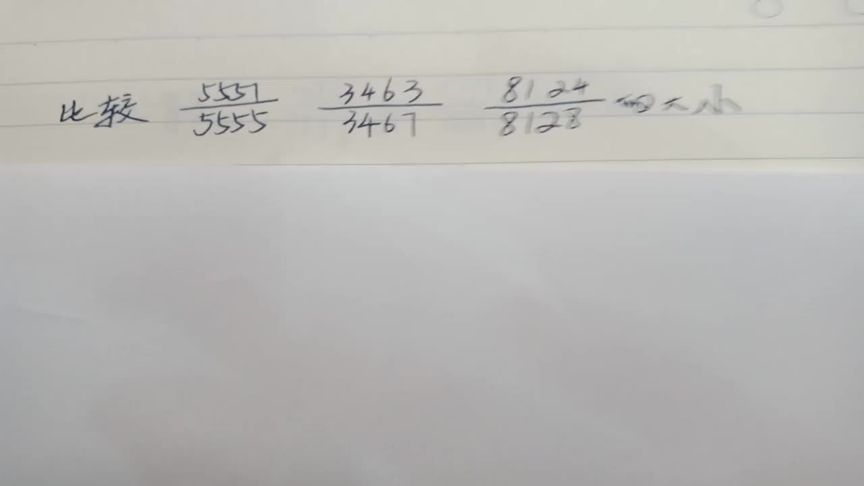 比较 5551/5555 3463/3467 8124/8128 的大小